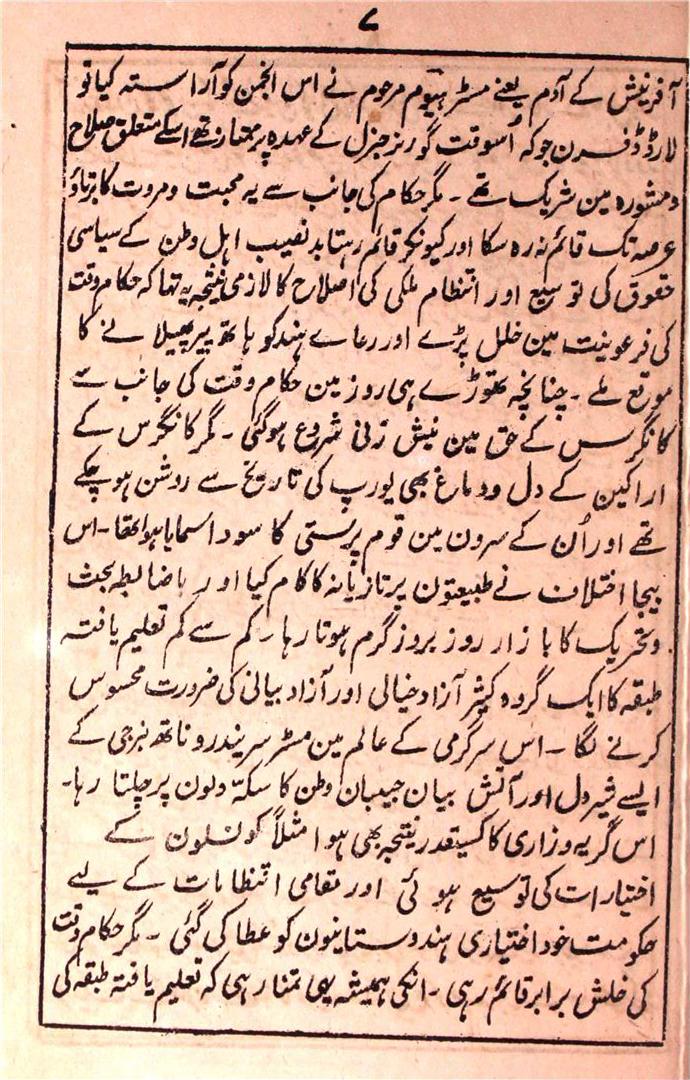 ۷
آفرنیش کے آدم یعنے مسٹر ہیوم مرحوم نے اس انجمن کو آراستہ کیا تو
لارڈ ڈفرن جو کہ اُسوقت گورنر جنرل کے عہدہ پر ممتاز تھے اسکے متعلق صلاح
ومشورہ مین شریک تھے ۔ مگر حکام کی جانب سے یہ محبت ومروت کا برتاؤ
عرصہ تک قائم نہ رہ سکا اور کیونکر قائم رہتا بد نصیب اہل وطن کے سیاسی
حقوق کی توسیع اور انتظام ملکی کی اصلاح کا لازمی نتیجہ یہ تھا کہ حکام وقت
کی فرعونیت مین خلل پڑے اور رعاے ہند کو ہاتھ پیر پھیلانے کا
موقع ملے ۔ چنانچہ تھوڑے ہی روز مین حکام وقت کی جانب سے
کانگرس کے حق مین نیش زنی شروع ہوگئی ۔ مگر کانگرس کے
اراکین کے دل ودماغ بھی یورپ کی تاریخ سے روشن ہوچکے
تھے اور اُن کے سرون مین قوم پرستی کا سودا سمایا ہوا تھا ۔ اس
بیجا اختلاف نے طبیعتون پر تازیانہ کا کام کیا اور باضابطہ بحث
وتحریک کا بازار روز بروز گرم ہوتا رہا ۔ کم سے کم تعلیم یافتہ
طبقہ کا ایک گروہ کثیر آزاد خیالی اور آزاد بیانی کی ضرورت محسوس
کرنے لگا ۔ اس سرگرمی کے عالم مین مسٹر سریندرو ناتھ بنرجی کے
ایسے شیر دل اور آتش بیان حبیبان وطن کا سکہ دلون پر چلتا رہا ۔
اس گریہ وزاری کا کسیقدر نتیجہ بھی ہوا مثلاً کونسلون کے
اختیارات کی توسیع ہوئی اور مقامی انتظامات کے لیے
حکومت خود اختیاری ہندوستانیون کو عطا کی گئی ۔ مگر حکام وقت
کی خلش برابر قائم رہی ۔ انکی ہمیشہ یہی تمنا رہی کہ تعلیم یافتہ طبقہ کی